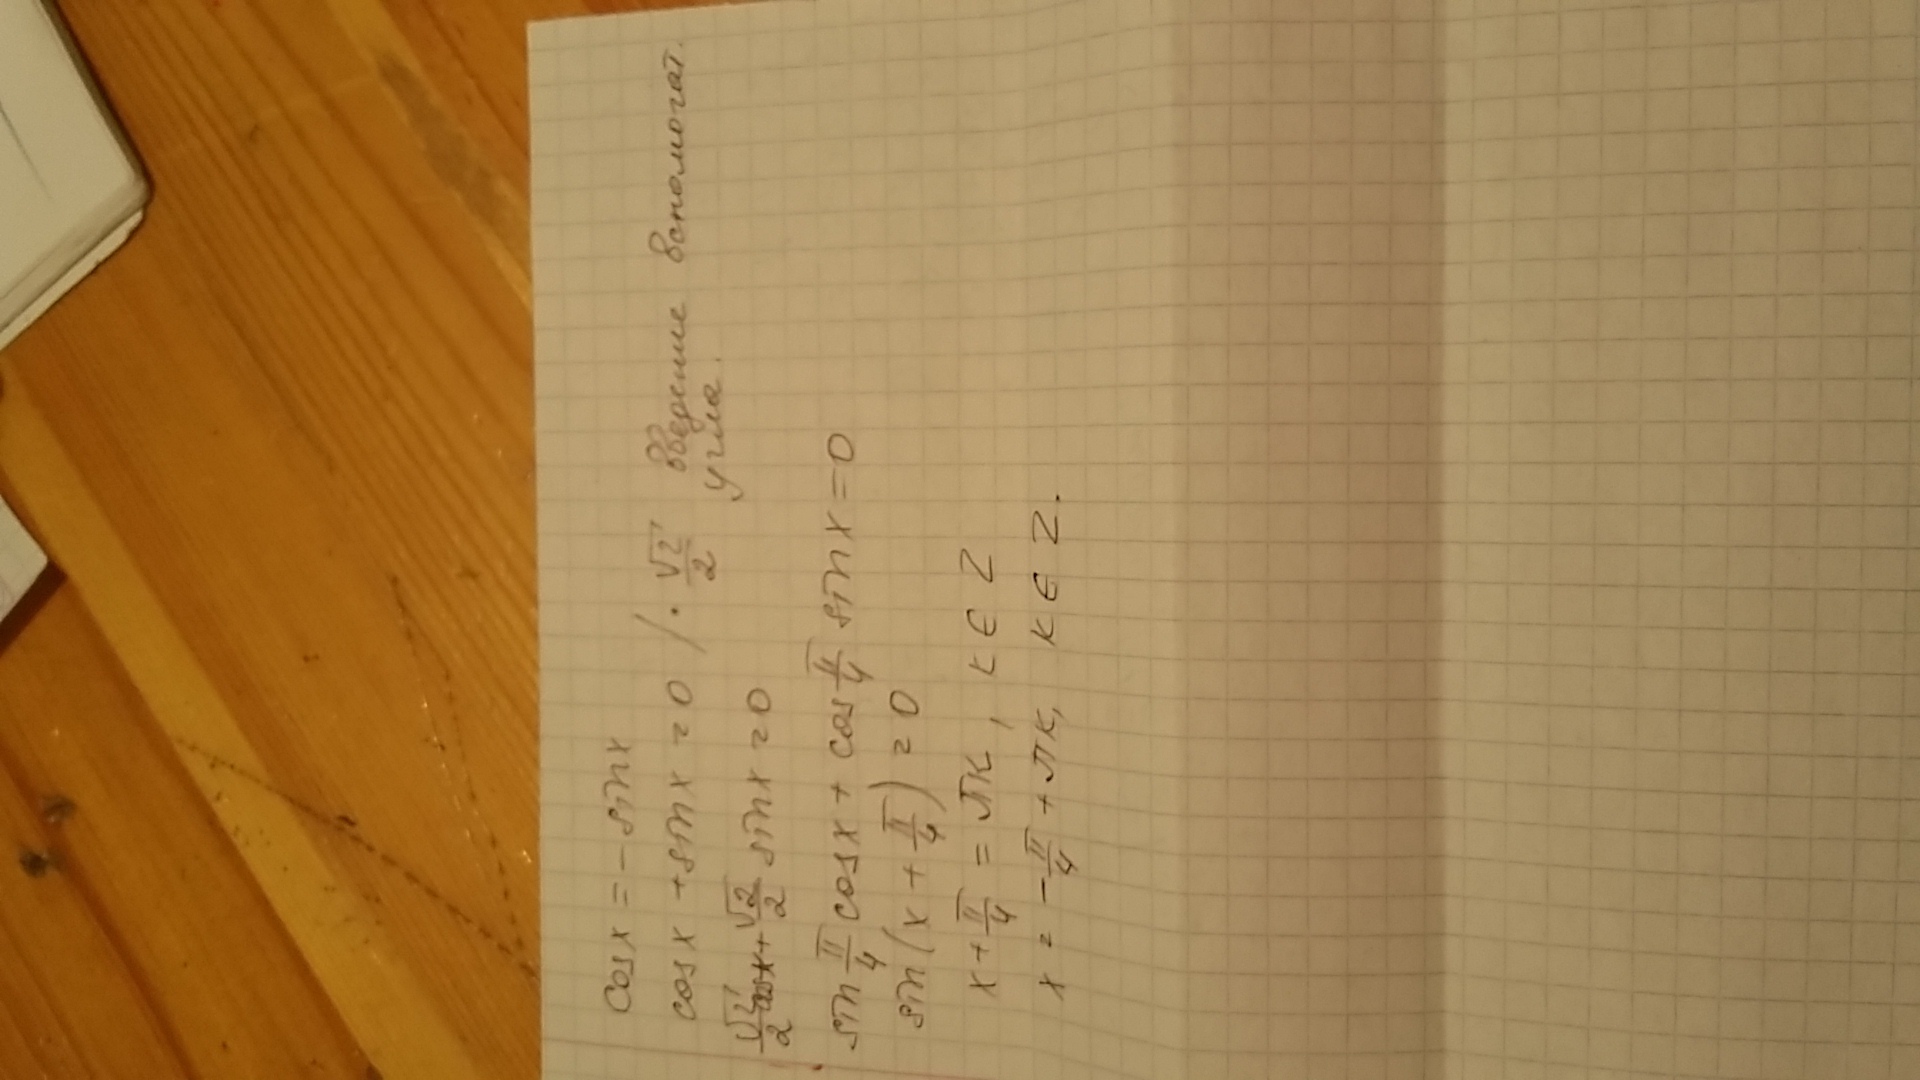 cosx = -sinx
cosx + sinx = 0 / · √2/2 введение вспомогат.
угла.
√2/2 cosx + √2/2 sinx = 0
sin π/4 cosx + cos π/4 sinx = 0
sin(x + π/4) = 0
x + π/4 = πк, к ∈ Z
x = -π/4 + πк, к ∈ Z.